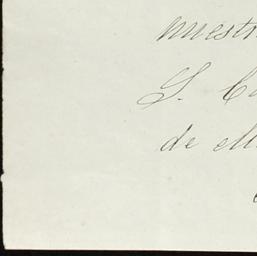 nuestr
S. C
de M